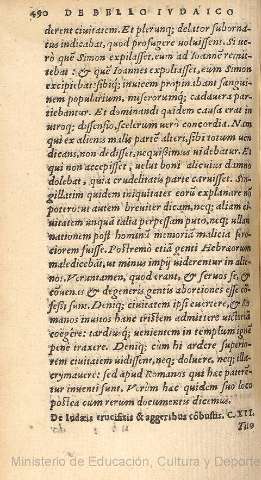 490 DE BELLO IVDAICO
derent ciuitatem. Et plerunq; delator subornatus
indicabat, quod profugere voluissent. Si uerò
quē Simon expilasset, eum ad Ioannē requittebat
: & quē Ioannes expoliasset, eum Simon
excipiebat: sibiq; inuicem propinabant sanguinem
popularium, miserorumq; cadauera partiebantur.
Et dominandi quidem causa erat in
utroq; dissensio, scelerum uerò concordia. Nam
qui ex alienis malis partē alteri, sibi totum uendicans,
non dedisset, nequissimus uidebatur. Et
qui non accepisset, uelut boni alicuius damno
dolebat, quia crudelitatis parte caruisset. Singillatim
quidem iniquitates eorū explanare nō
potero: ut autem breuiter dicam, neq; aliam ciuitatem
unquā talia perpessam puto, neq; ullam
nationem post hominū memoriā malicia ferociorem
fuisse. Postremò etiā genti Hebræorum
maledicebāt, ut minus impij uiderentur in alienos.
Veruntamen, quod erant, & seruos se, &
cōuenas & degeneris gentis abortiones esse confessi
sunt. Deniq; ciuitatem ipsi euertere, & Romanos
inuitos hanc tristem admittere uictoriā
coegère: tardiusq; uenientem in templum ignē
penè traxere. Deniq; cùm hi ardere superiorem
ciuitatem uidissent, neq; doluere, neq; illacrymauere:
sed apud Romanos qui hac paterētur
inuenti sunt. Verùm hac quidem suo loco
postea cum rerum documentis dicemus.
De Iudæis crucifixis & aggeribus cōbustis. C. XII.
Tito
Ministerio de Educación, Cultura y Deporte